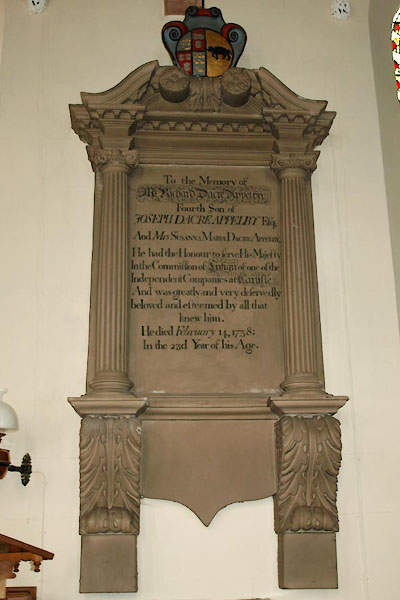 To the Memory of
Mr Richard Dacre Appelby
Fourth Son of
JOSEPH DACRE APPELBY Esq.
And Mrs Susanna Maria Dacre Appelby,
He had the Honour to serve His Majesty
In the Commission of Ensign of one of the
Independent Companies at Carlisle:
And was greatly and very deservedly
beloved and esteemed by all that
knew him.
He died February 14, 1738:
In the 23d Year of his Age.